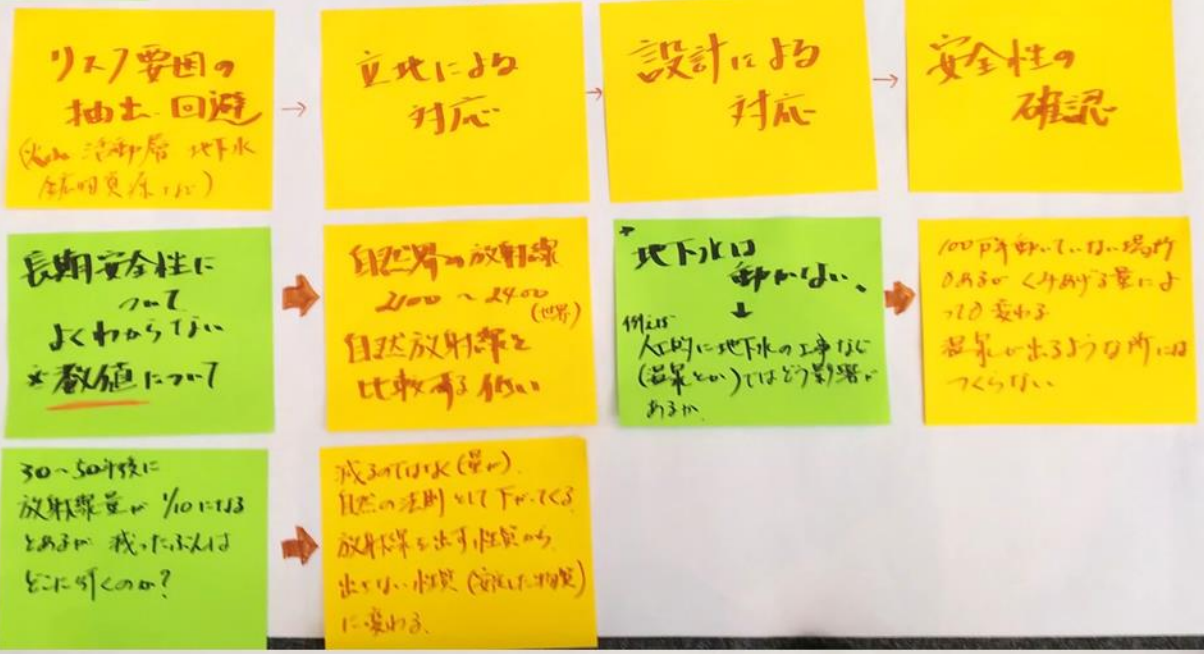 リスク要因の
抽出、回避
(火山 活断層 地下水
鉱物資源など)
→
立地による
対応
→
設計による
対応
→
安全性の
確認
長期安全性に
ついて
よくわからない
※数値について
自然界の放射線
2100〜2400
(世界)
自然放射線と
比較する 低い
地下水は
動かない。
↓
例えば
人工的に地下水の工事など
(温泉とか)ではどう影響が
あるか
100万年動いていない場所
もあるが くみあげる量によ
っても変わる
温泉が出るような所には
つくらない
30〜50年後に
放射線量が 1/10になる
とあるが 減ったぶんは
どこに行くのか?
減るのではなく(量が)、
自然の法則として下がってくる
放射線を出す性質から
出さない性質(安定した物質)
に変わる、